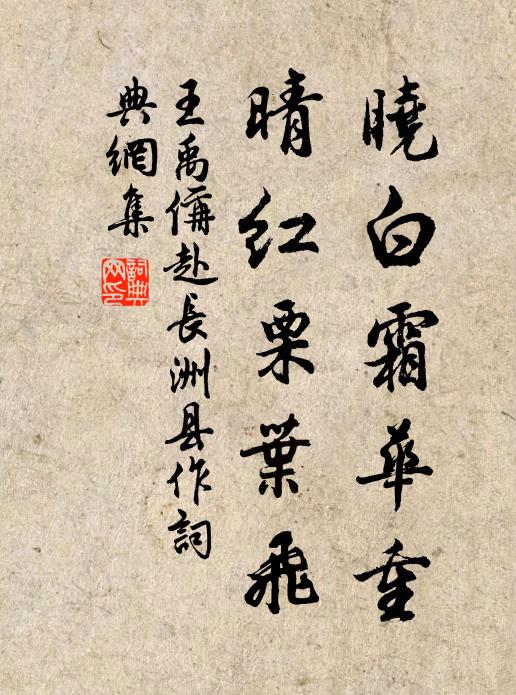 曉白霜華重
晴紅栗葉飛
王禹偁赴長洲县作詞
典網集
詞典网印